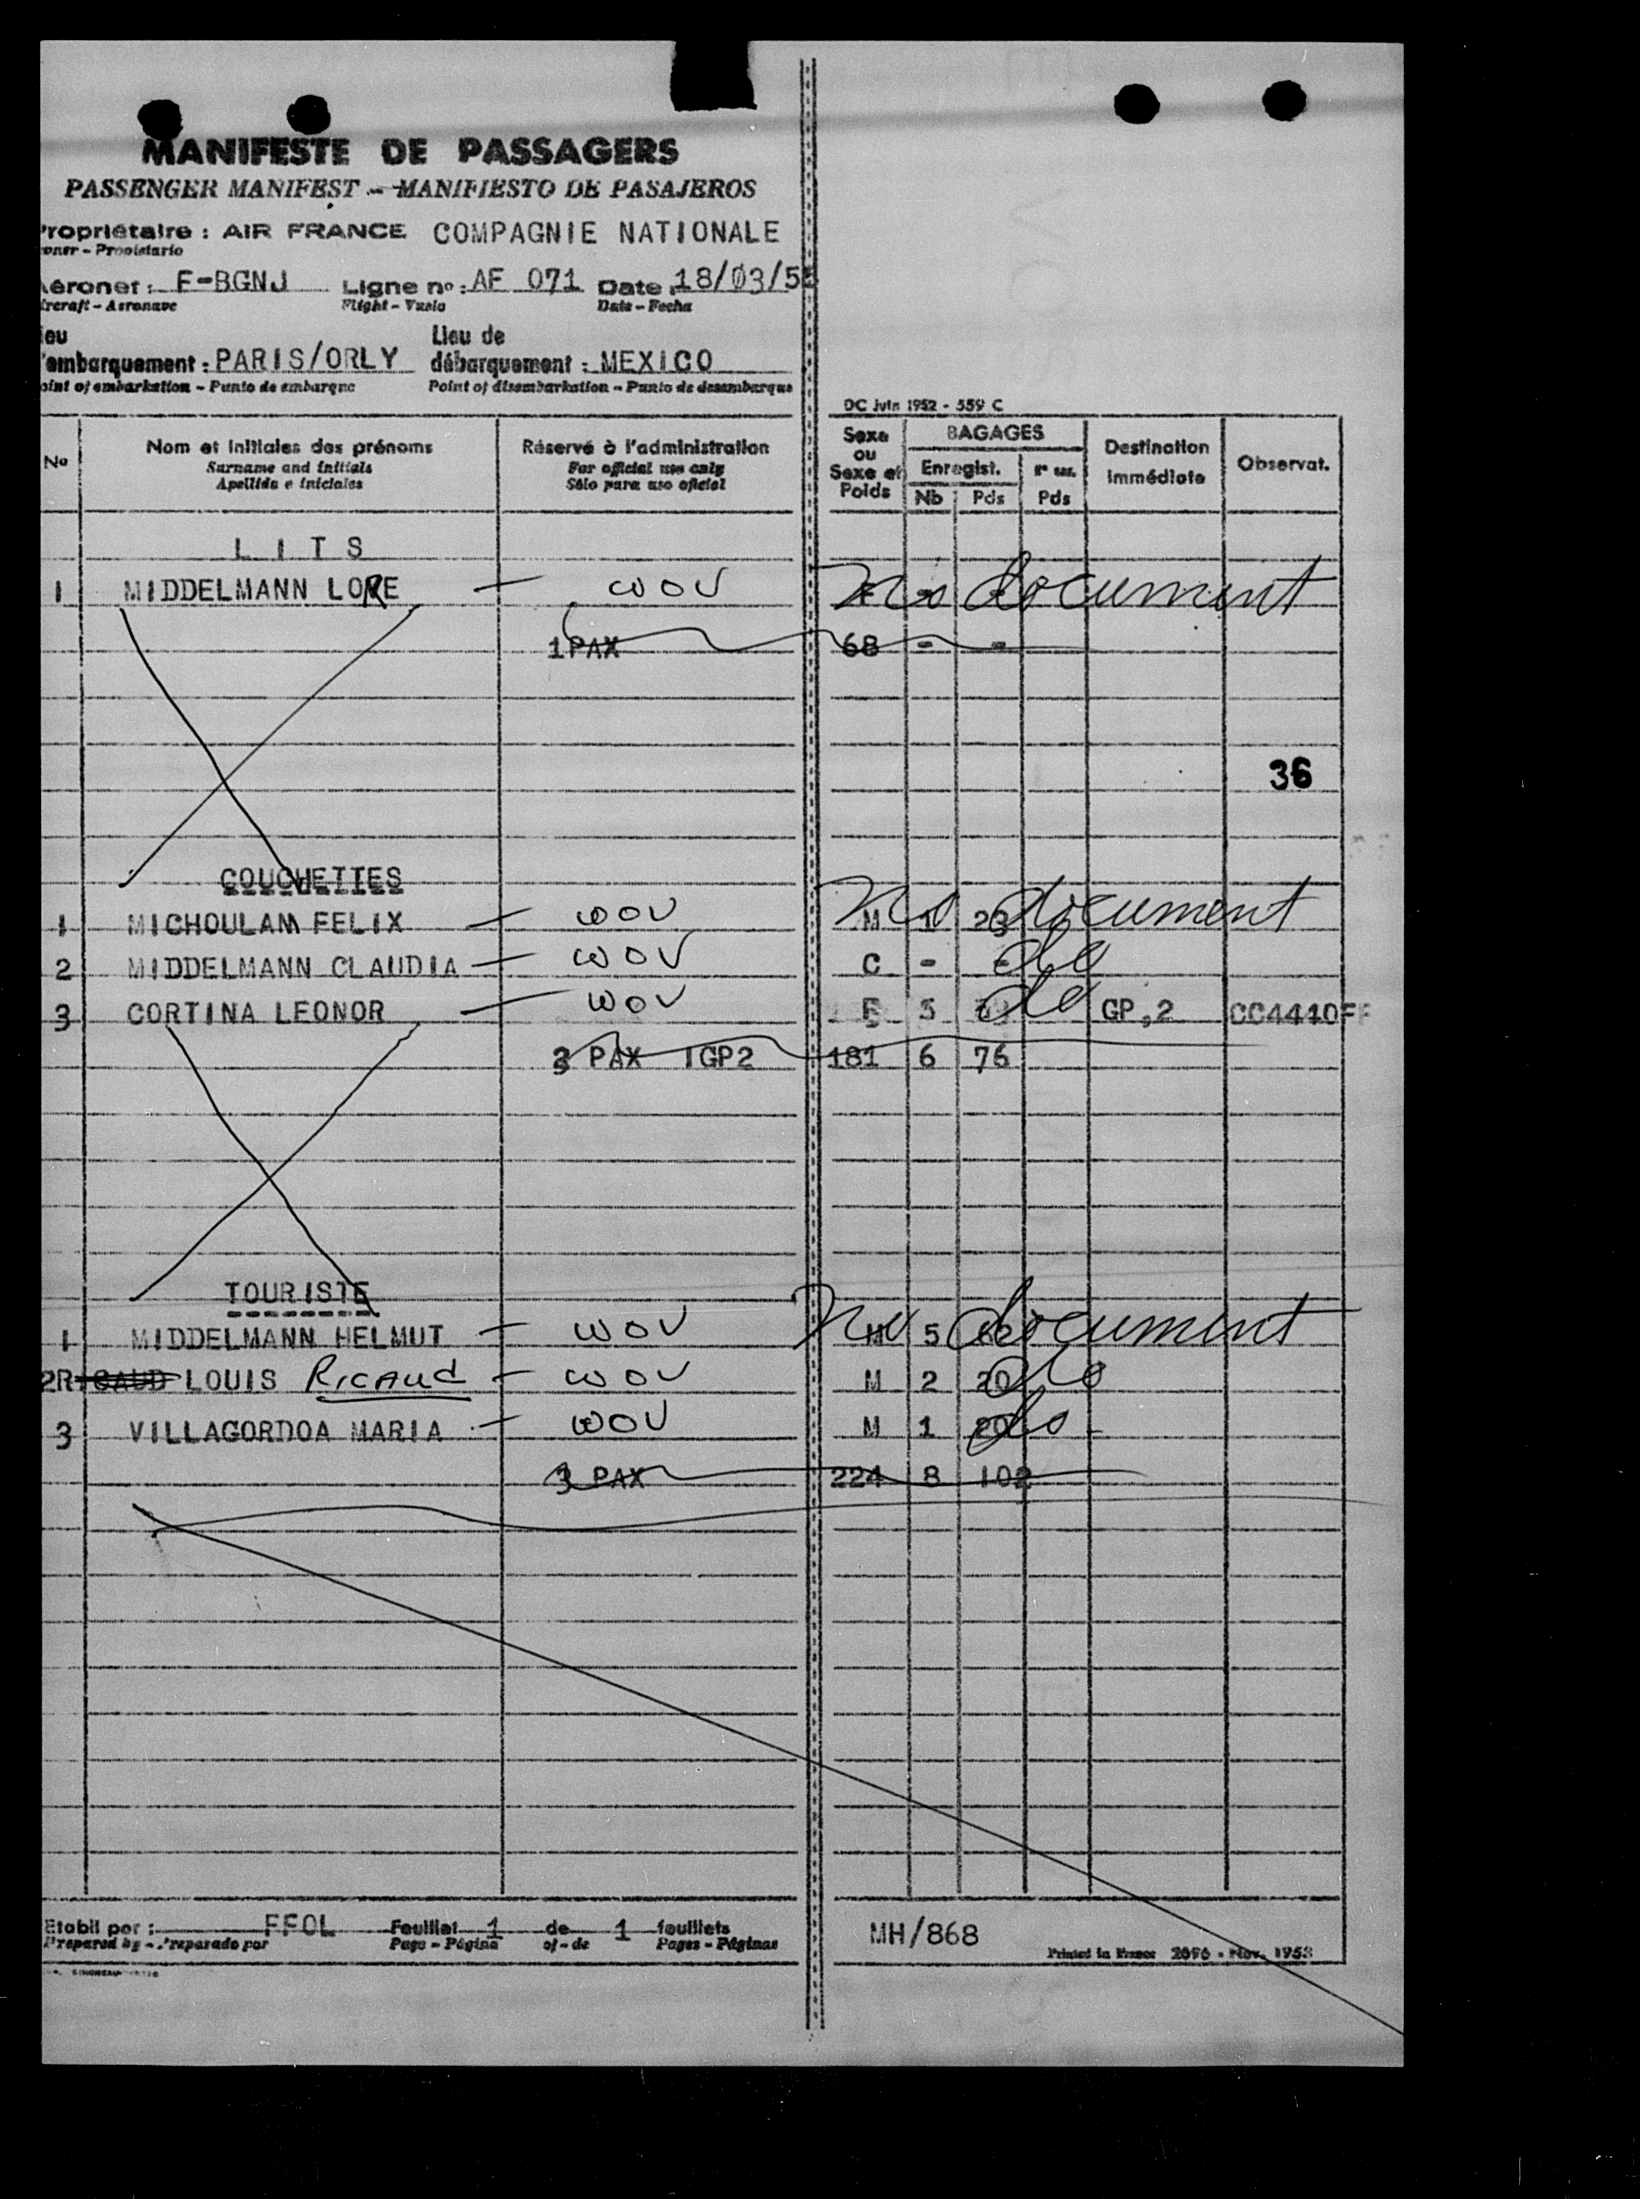 MANIFESTE DE PASSAGERS
PASSENGER MANIFEST - MANIFIESTO DE PASAJEROS
ropriétaire : AIR FRANCE COMPAGNIE NATIONALE
wner - Propietario
Aéronef : F-BGNJ Ligne no : AF 071 Date : 18/03/5
ircraft - Aeronave Flight - Vuelo Date - Fecha
ieu Lieu de
'embarquement : PARIS/ORLY débarquement : MEXICO
oint of embarkation - Punto de embarque Point of disembarkation - Punto de desembarque
DC Juin 1952 - 559 C
No Nom et initiales des prénoms Réservé à l'administration Sexe ou Sexe et Poids BAGAGES Destination immédiate Observat.
Surname and initials For official use only Enregist.
Apellido e iniciales Sólo para uso oficial Nb Pds Pds
LITS
1 MIDDELMANN LORE - WOV No document
1 PAX 68 - -
36
COUCHETTES
1 MICHOULAM FELIX - WOV M 1 23 No document
2 MIDDELMANN CLAUDIA - WOV C - - do
3 CORTINA LEONOR - WOV F 5 do GP,2 CC4410FF
3 PAX 1GP2 181 6 76
TOURISTE
1 MIDDELMANN HELMUT - WOV M 5 62 No document
2 RICAUD LOUIS Ricaud - WOV M 2 20 do
3 VILLAGORDOA MARIA - WOV M 1 20 do
3 PAX 224 8 102
Etabli par : FFOL Feuillet 1 de 1 feuillets MH/868
Prepared by - Preparado por Page - Página of - de Pages - Páginas Printed in France 2696 - Nov. 1953